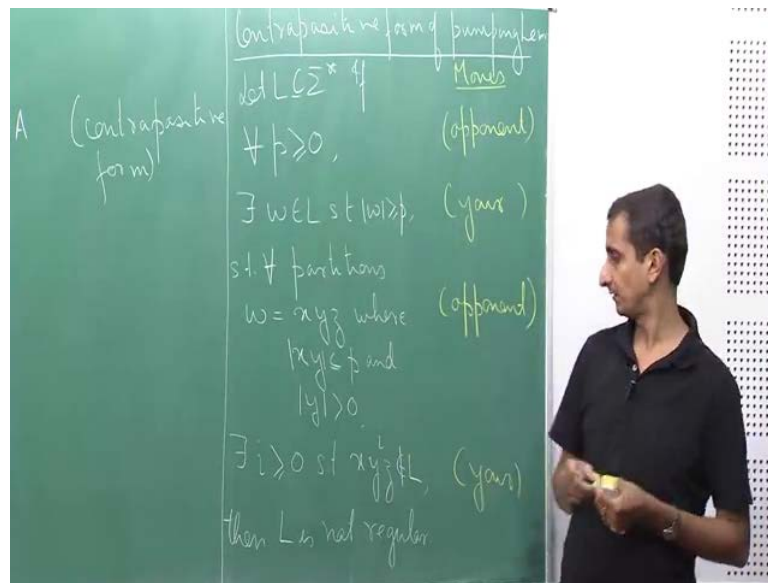 A (contrapositive
form)
Contrapositive form of pumping lem
Let L ⊆ Σ* if
Moves
∀ p ≥ 0,
(opponent)
∃ w ∈ L s t |w| ≥ p,
(your)
s.t. ∀ partitions
w = xyz where
(opponend)
|xy| ≤ p and
|y| > 0,
∃ i ≥ 0 s t xyⁱz ∉ L,
(your)
then L is not regular.